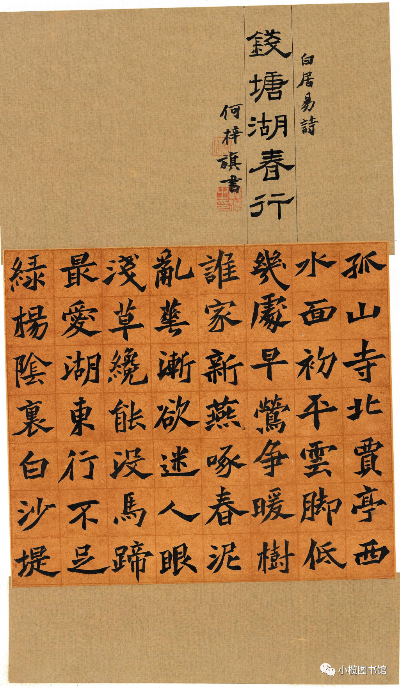 白居易詩
錢塘湖春行
何梓旗書
孤山寺北賈亭西
水面初平雲脚低
幾處早鶯争暖樹
誰家新燕啄春泥
亂花漸欲迷人眼
淺草纔能没馬蹄
最愛湖東行不足
緑楊陰裏白沙堤
小榄图书馆